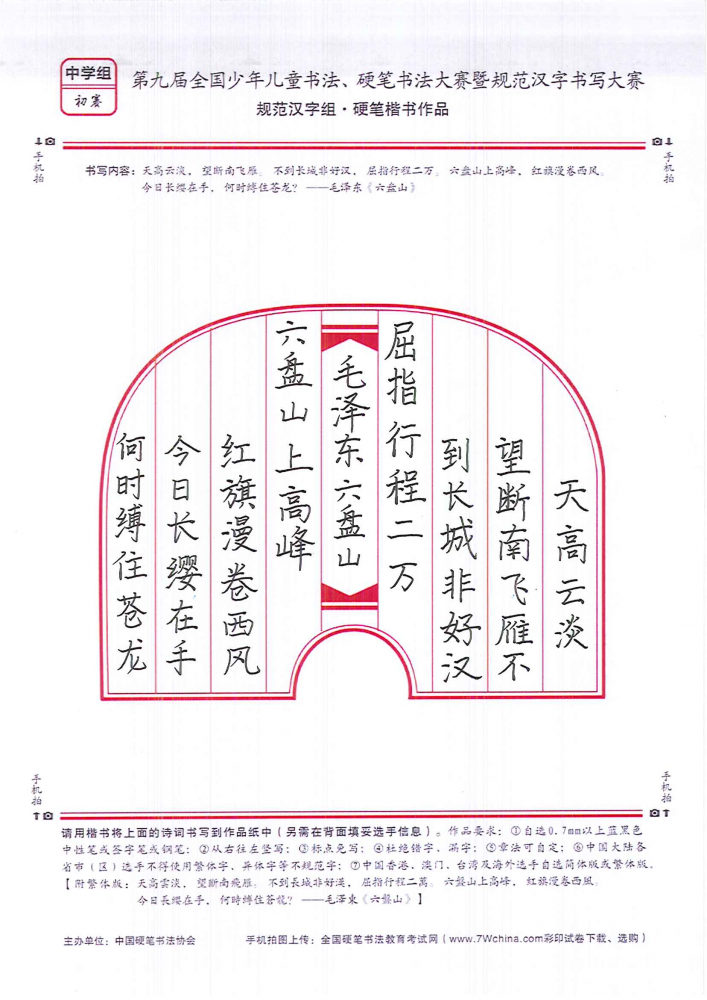 中学组
初赛
第九届全国少年儿童书法、硬笔书法大赛暨规范汉字书写大赛
规范汉字组·硬笔楷书作品
手机拍
手机拍
书写内容：天高云淡，望断南飞雁。不到长城非好汉，屈指行程二万。六盘山上高峰，红旗漫卷西风。
今日长缨在手，何时缚住苍龙？——毛泽东《六盘山》
天高云淡
望断南飞雁不
到长城非好汉
屈指行程二万
毛泽东六盘山
六盘山上高峰
红旗漫卷西风
今日长缨在手
何时缚住苍龙
手机拍
手机拍
请用楷书将上面的诗词书写到作品纸中（另需在背面填妥选手信息）。作品要求：①自选0.7mm以上蓝黑色
中性笔或签字笔或钢笔；②从右往左竖写；③标点免写；④杜绝错字、漏字；⑤章法可自定；⑥中国大陆各
省市（区）选手不得使用繁体字、异体字等不规范字；⑦中国香港、澳门、台湾及海外选手自选简体版或繁体版。
【附繁体版：天高雲淡，望斷南飛雁。不到長城非好漢，屈指行程二萬。六盤山上高峰，紅旗漫卷西風。
今日長纓在手，何時縛住蒼龍？——毛澤東《六盤山》】
主办单位：中国硬笔书法协会
手机拍图上传：全国硬笔书法教育考试网（www.7Wchina.com彩印试卷下载、选购）